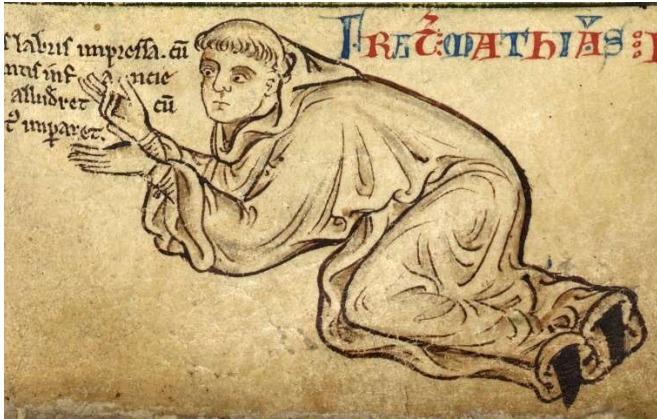 FRET̃ MATHIAS
s labris impressa. cū
ntis infancie
alludret cū
imparet.